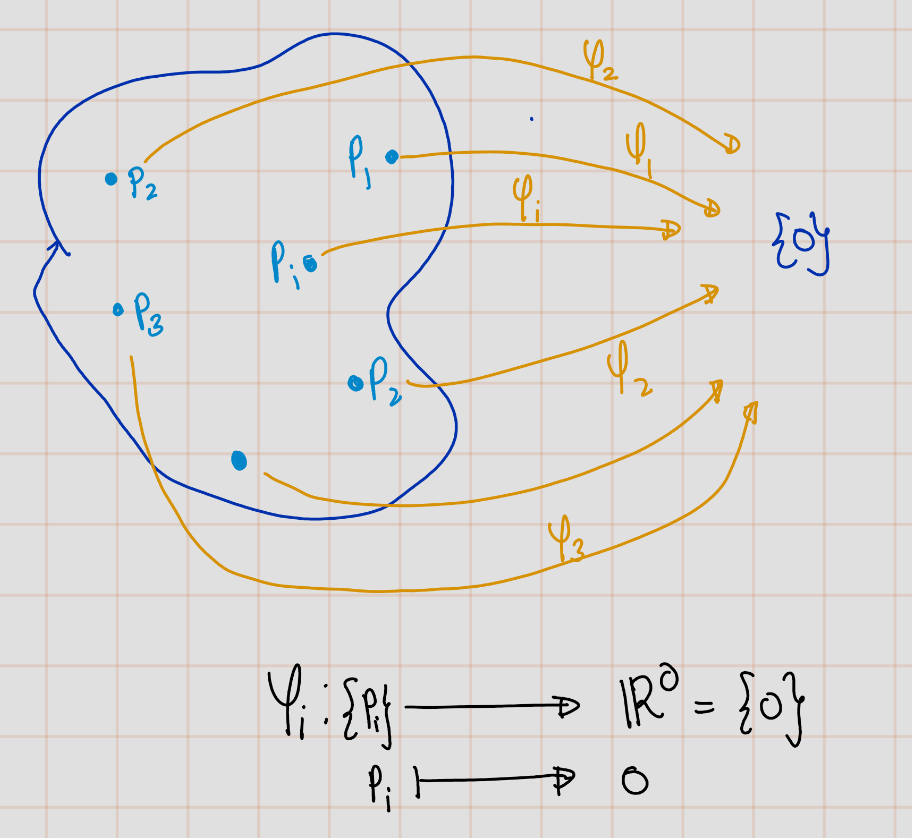 φ₂
P₁ φ₁
P₂
φᵢ
Pᵢ {0}
P₃
P₂ φ₂
φ₃
φᵢ : {Pᵢ} ⟶ ℝ⁰ = {0}
Pᵢ ⟼ 0